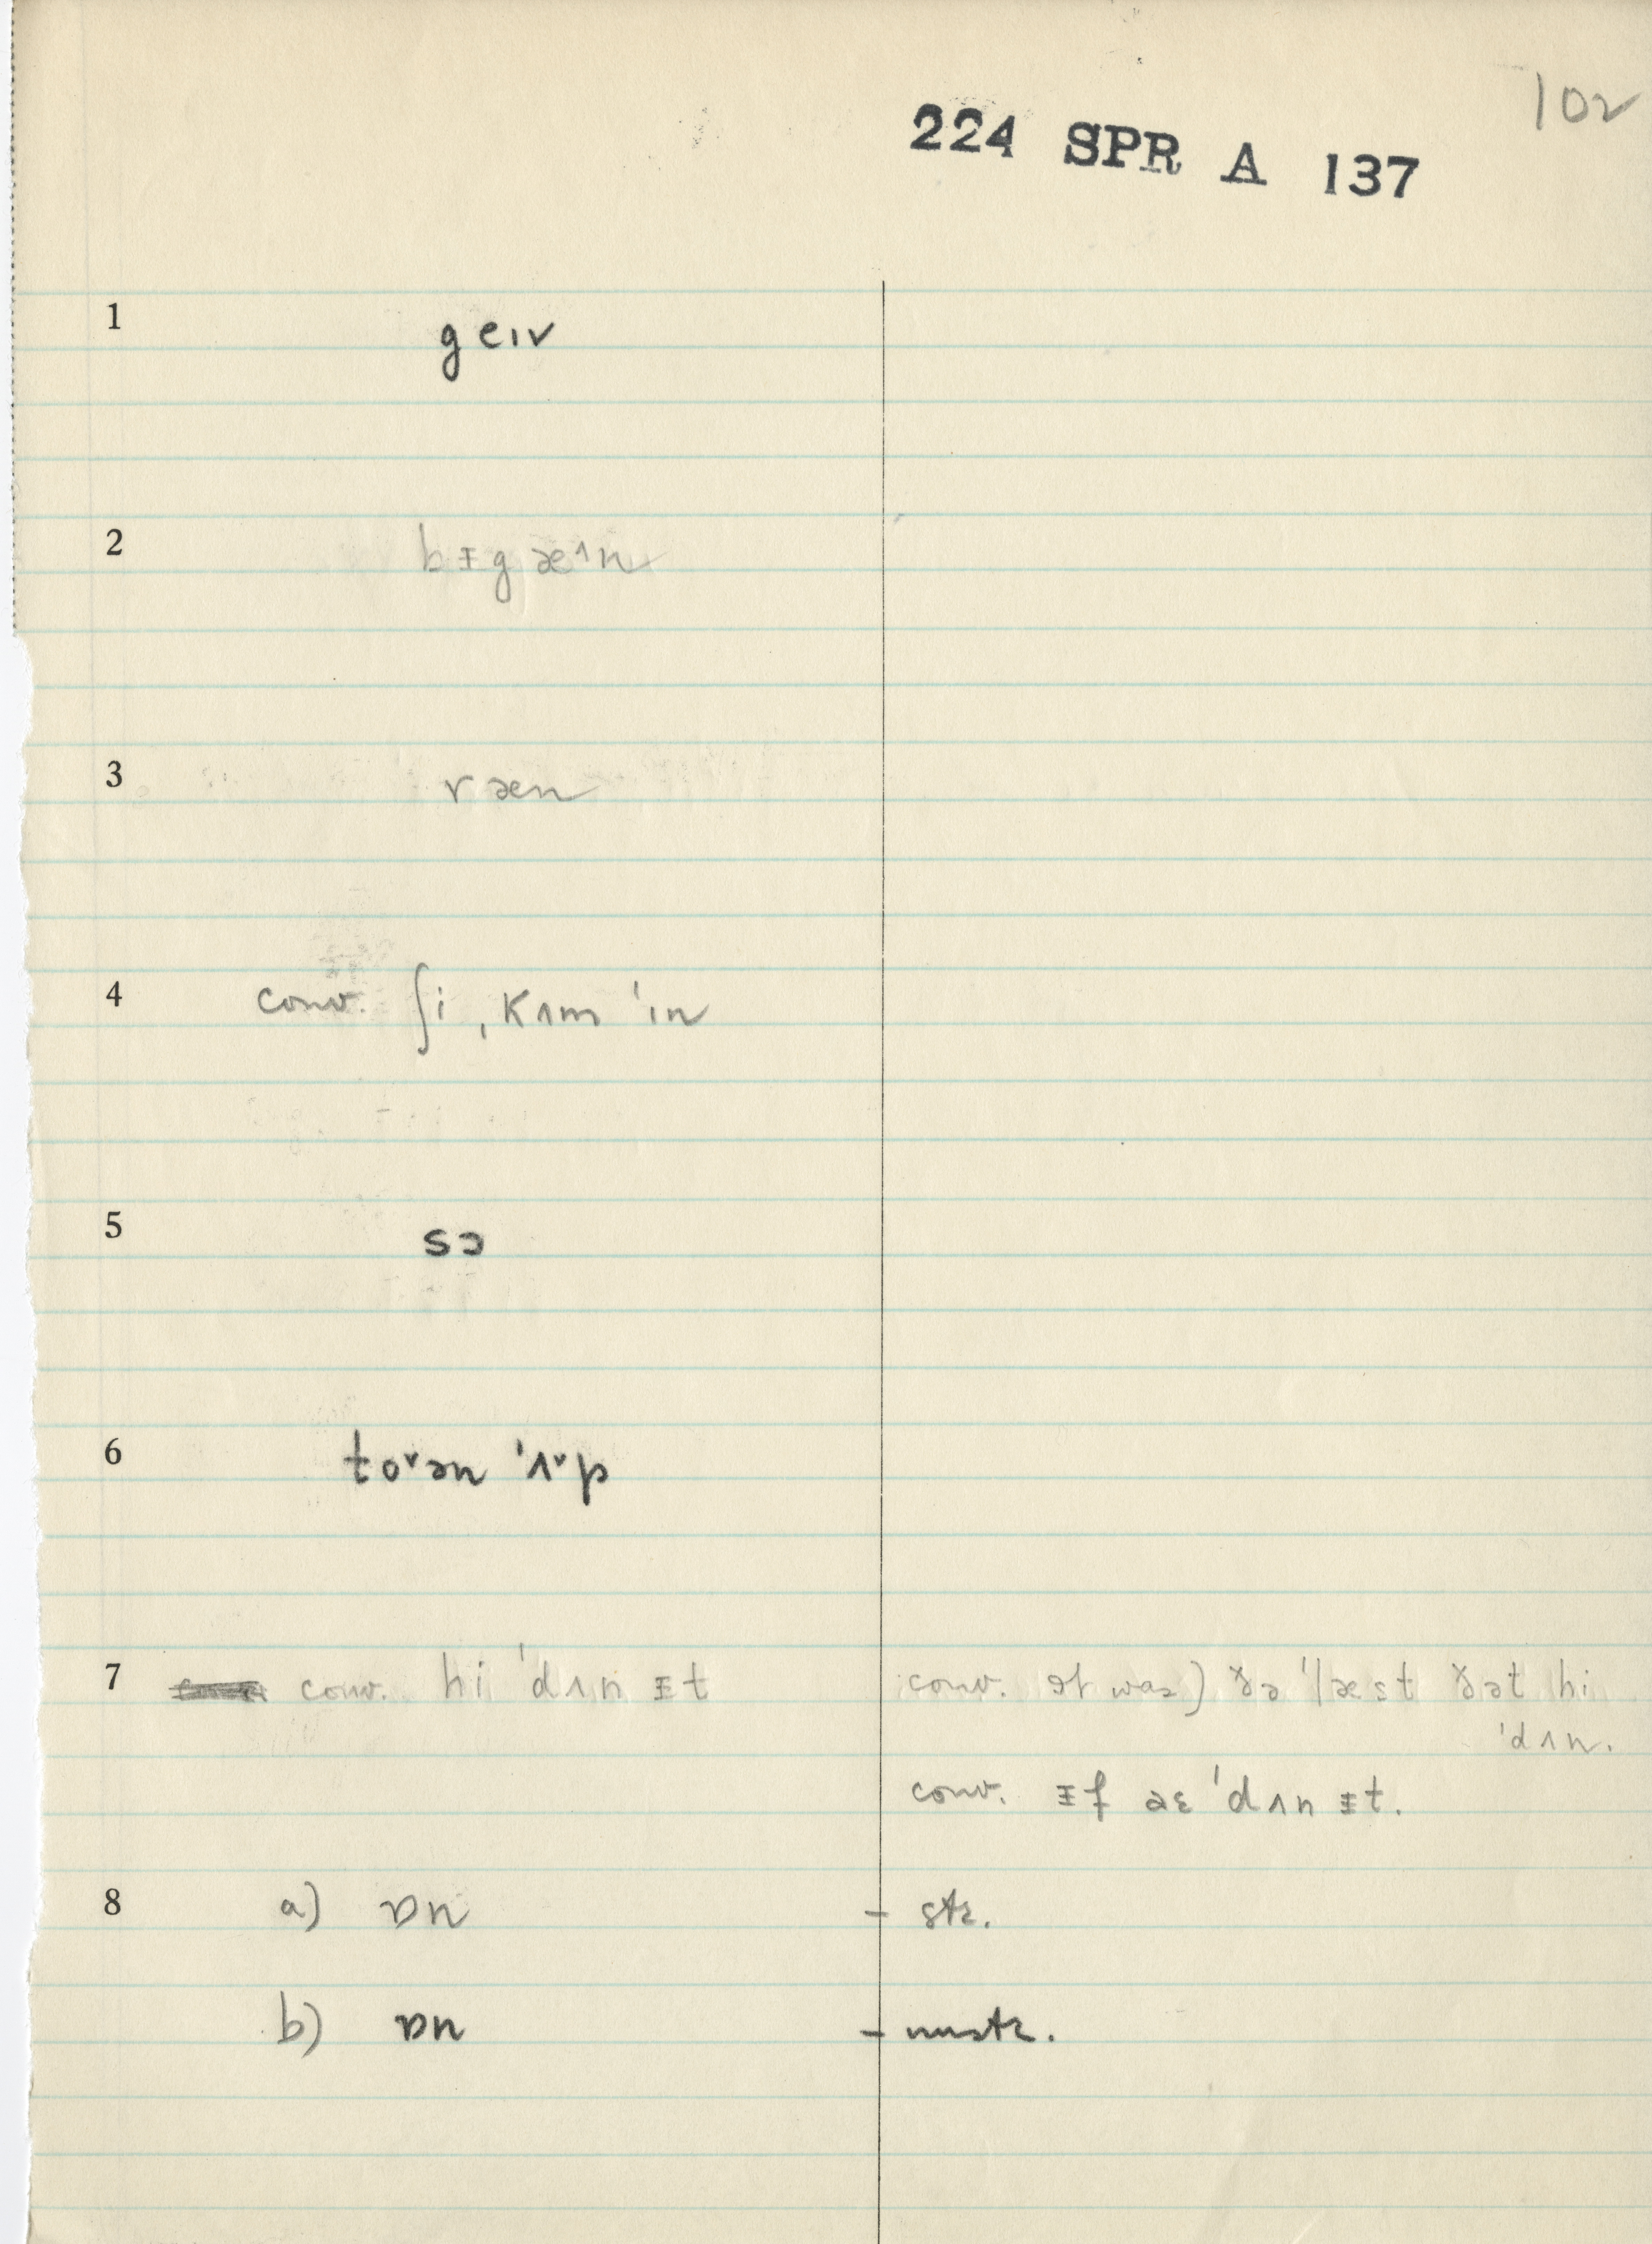 102
224 SPR A 137
1 geɪv
2 bᵻgæ^n
3 ræn
4 conv. ʃi ˌkʌm ˈɪn
5 sɔ
6 toˇən ˈʌˇp
7 conv. hi ˈdʌn ᵻt conv. It was) ðə ˈlæst ðət hi
ˈdʌn.
conv. ᵻf aɛ ˈdʌn ᵻt.
8 a) ɒn - str.
b) ɒn - unstr.